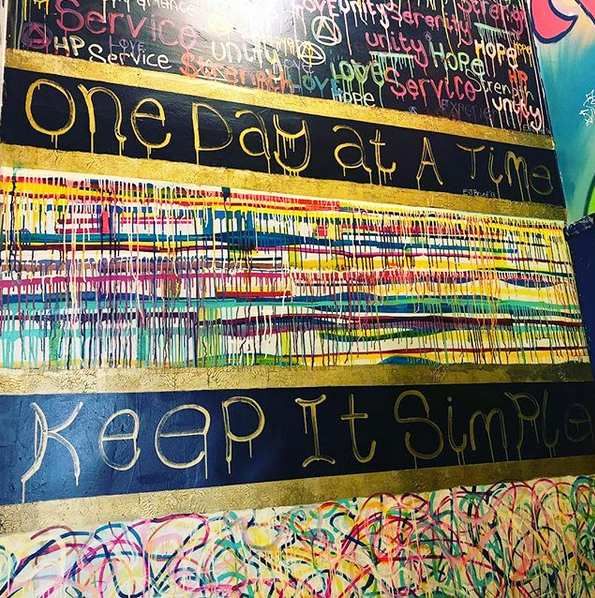 LOVE UNITY Serenity Strength
Service
HP
LOVE
unity
unity HOPE HOPE
Service
Strength
LOVE
LOVES
Service
HP
Strength
HOPE
unity
One Day at A Time
Keep It Simple